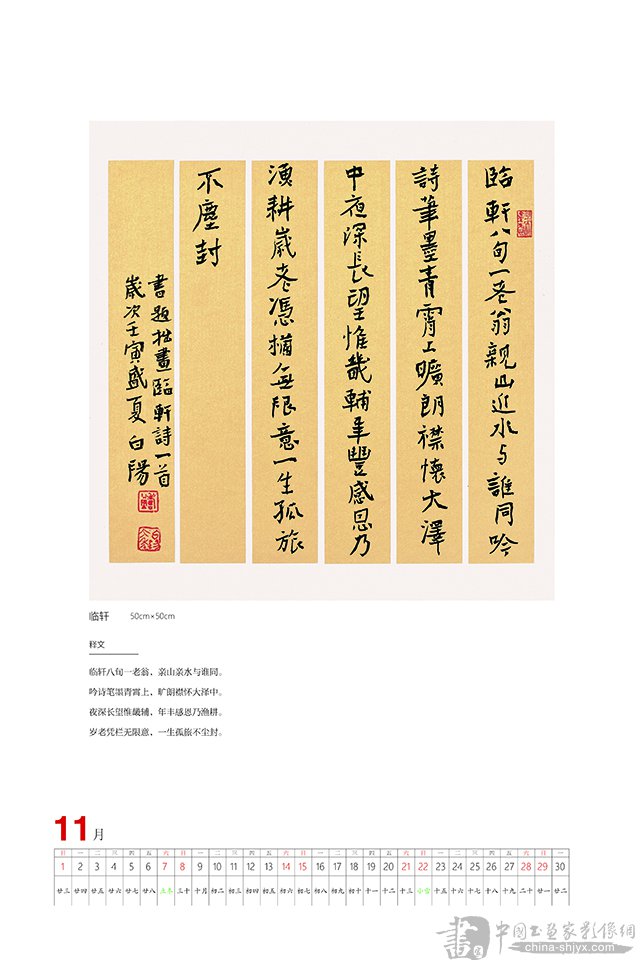 臨軒八旬一老翁親山近水与誰同吟
詩筆墨青霄上曠朗襟懷大澤
中夜深長望惟畿輔年豐感恩乃
漁耕歲老憑欄無限意一生孤旅
不塵封
書題拙畫臨軒詩一首
歲次壬寅盛夏白陽
临轩 50cm×50cm
释文
临轩八旬一老翁，亲山亲水与谁同。
吟诗笔墨青霄上，旷朗襟怀大泽中。
夜深长望惟畿辅，年丰感恩乃渔耕。
岁老凭栏无限意，一生孤旅不尘封。
11月
日 一 二 三 四 五 六 日 一 二 三 四 五 六 日 一 二 三 四 五 六 日 一 二 三 四 五 六 日 一
1 2 3 4 5 6 7 8 9 10 11 12 13 14 15 16 17 18 19 20 21 22 23 24 25 26 27 28 29 30
廿三 廿四 廿五 廿六 廿七 廿八 立冬 三十 十月 初二 初三 初四 初五 初六 初七 初八 初九 初十 十一 十二 十三 小雪 十五 十六 十七 十八 十九 二十 廿一 廿二
中国书画家影像網
china-shjyx.com